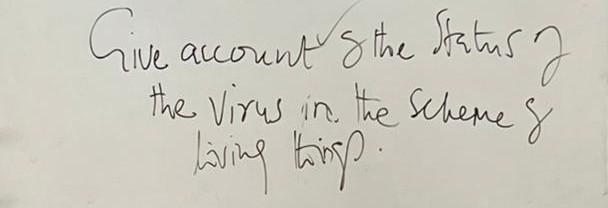 Give account of the Status of
the Virus in the Scheme of
living things.